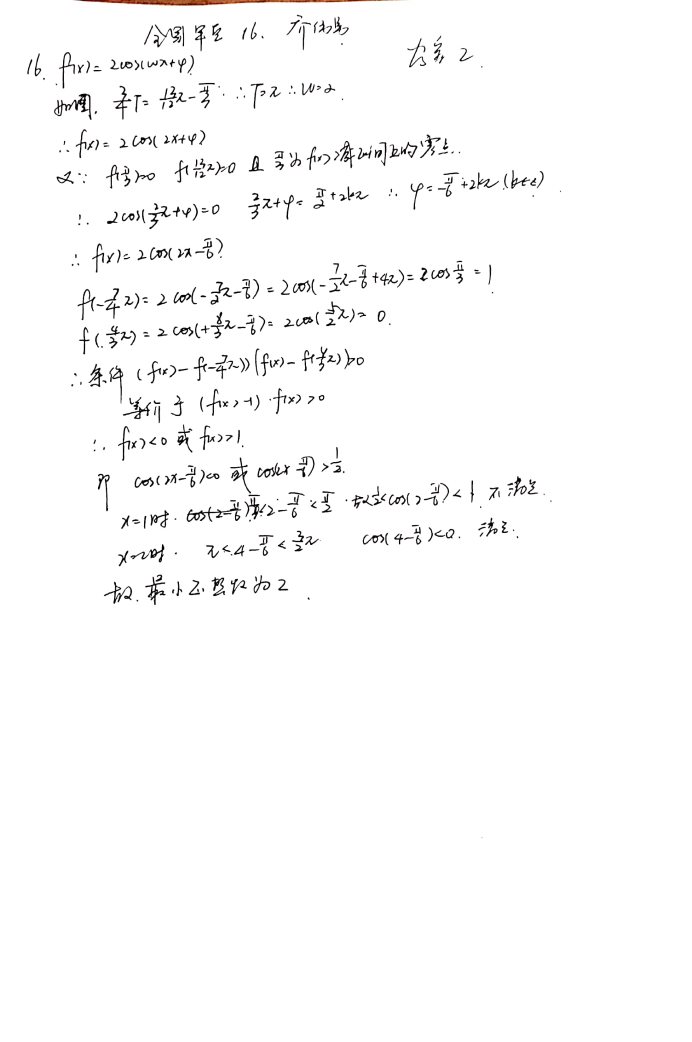 全国甲卷 16.
答案 2.
16. f(x)=2cos(ωx+φ)
如图. 3/4T=13/12π-π/3 ∴T=π ∴ω=2
∴f(x)=2cos(2x+φ)
又∵ f(π/3)=0 f(13/12π)=0 且 π/3为f(x)递减区间上的零点.
∴ 2cos(2/3π+φ)=0 2/3π+φ=π/2+2kπ ∴ φ=-π/6+2kπ(k∈Z)
∴ f(x)=2cos(2x-π/6)
f(-7/4π)=2cos(-7/2π-π/6)=2cos(-7/2π-π/6+4π)=2cosπ/3=1
f(4/3π)=2cos(+8/3π-π/6)=2cos(5/2π)=0.
∴条件 (f(x)-f(-7/4π))(f(x)-f(4/3π))>0
等价于 (f(x)-1)·f(x)>0
∴ f(x)<0 或 f(x)>1
即 cos(2x-π/6)<0 或 cos(2x-π/6)>1/2.
x=1时. <2-π/6<π/2 故1/2<cos(2-π/6)<1 不满足.
x=2时. π<4-π/6<3/2π cos(4-π/6)<0. 满足.
故.最小正整数为2.